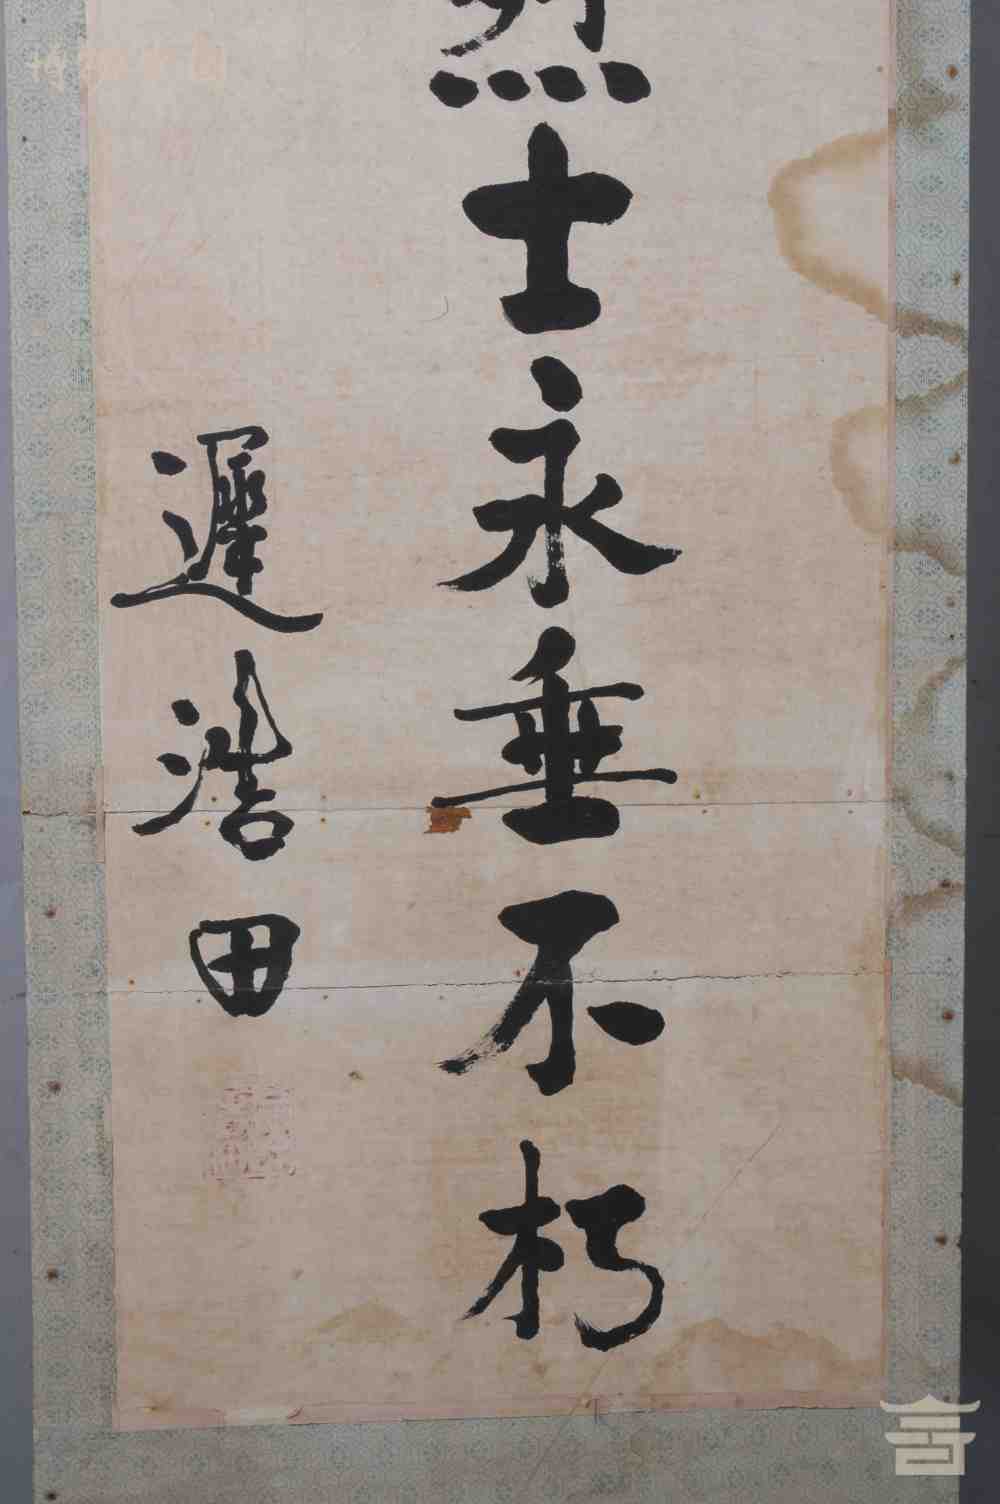 烈士永垂不朽
遲浩田